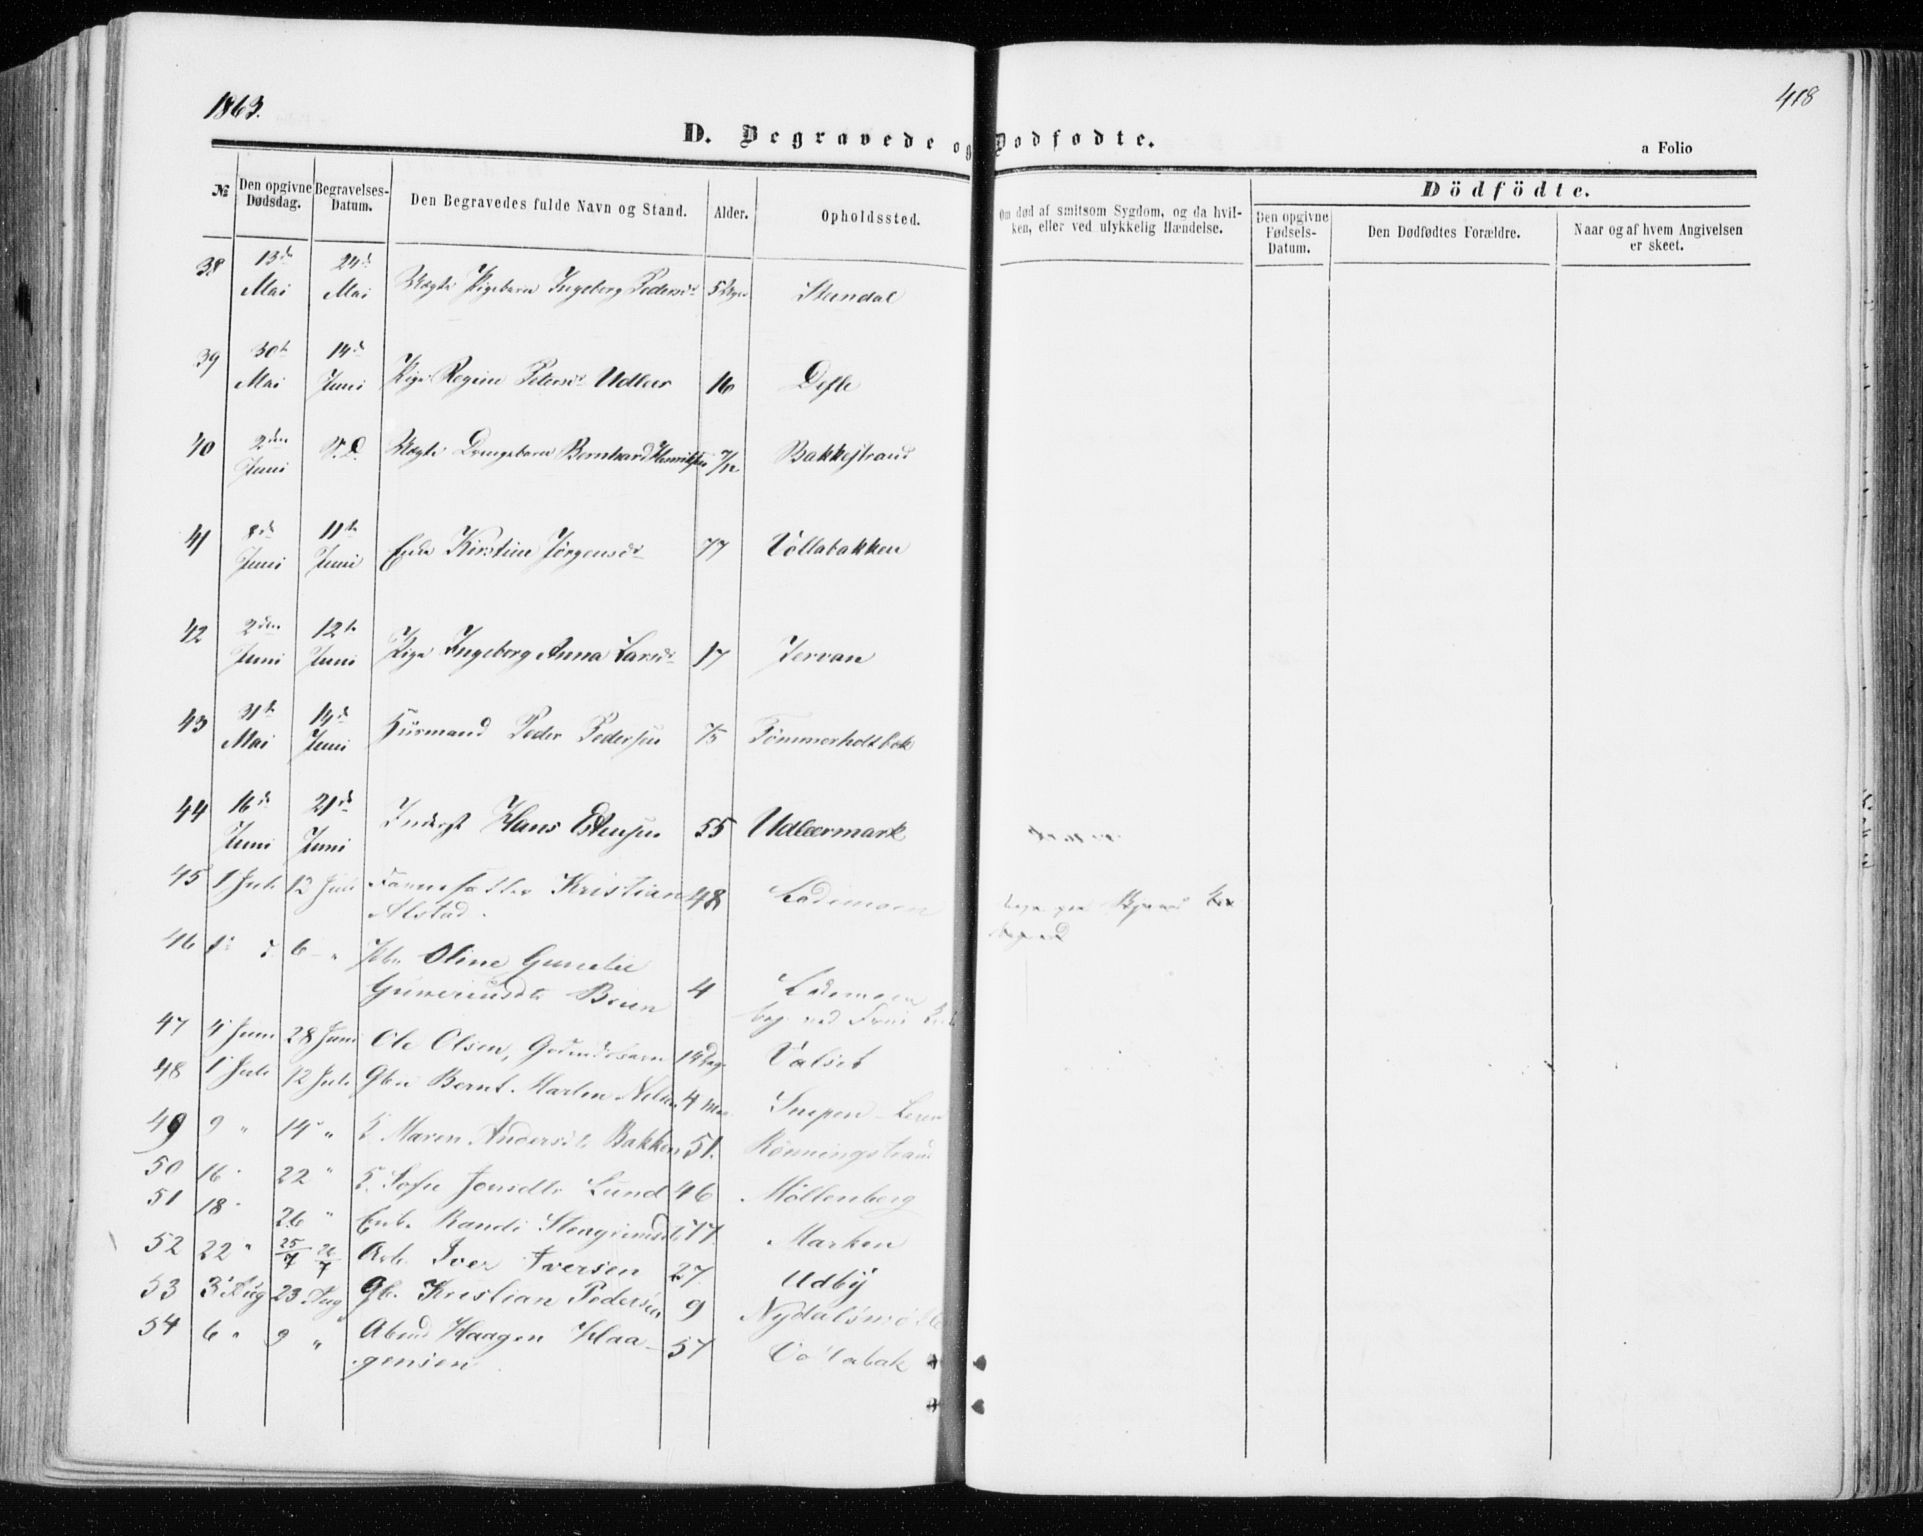 1863.
418
D. Begravede og Dødfødte.
a Folio
№ Den opgivne Dødsdag. Begravelses-Datum. Den Begravedes fulde Navn og Stand. Alder. Opholdssted. Om død af smitsom Sygdom, og da hvilken, eller ved ulykkelig Hændelse.
Dödfödte.
Den opgivne Fødsels-Datum. Den Dødfødtes Forældre. Naar og af hvem Angivelsen er skeet.
38 13de Mai 24de Mai Uægte Pigebarn Ingeborg Pedersd: 5 Uger Stendal
39 30te Mai 14de Juni Pige Regine Petersd: Udleer 16 Defle
40 2den Juni S.D. Uægte Drengebarn Bernhard Henriksen 7/12 Bakkestrand
41 8de Juni 11te Juni Enke Kirstine Jørgensdr 77 Vollabakken
42 2den Juni 12te Juni Pige Ingeborg Anna Larsdr 17 Jervan
43 31te Mai 14de Juni Huusmand Peder Pedersen 75 Tømmerholtbak
44 16de Juni 21de Juni Inderst Hans Estensen 55 Udleermark
45 1 Juli 12 Juli Kristian 48 Lademoen
Alstad.
46 6 " Oline
Beien 4 Lademoen
47 4 Juni 28 Juni Ole Olsen, 14 Dag Valset
48 1 Juli 12 Juli Gbn Bernt Martin 4 Leren
49 9 " 14 " Maren Andersdt. Bakken 51. Rønningstrand
50 16 " 22 " Sofie Jonsdtr Lund 46 Møllenberg
51 18 " 26 " Enke Randi Stengrimsdt 77. Marken
52 22 " 25/7 26/7 Arb. Iver Iversen 27 Udby
53 3 Aug 23 Aug Gb. Kristian Pedersen 9 Nydalsmølle
54 6 " 9 " Haagen Haa-
gensen 57